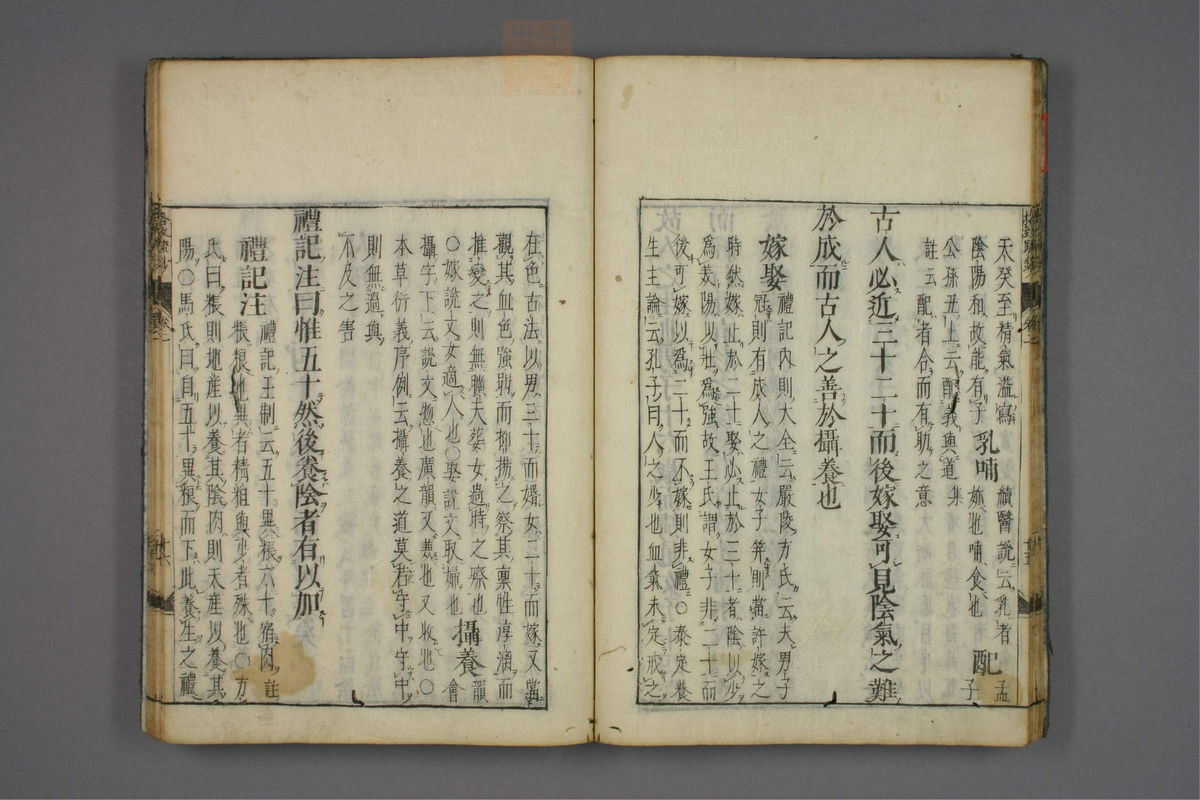 天癸至精氣溢寫
陰陽和故能有子
乳哺
續醫說云乳者
妳也哺食也
配
孟
子
公孫丑上云配義與道集
註云配者合而有助之意
古人必近三十二十而後嫁娶可見陰氣之難
於成而古人之善於攝養也
嫁娶
禮記內則大全云嚴陵方氏云夫男子
冠則有成人之禮女子筓則當許嫁之
時然嫁止於二十娶必止於三十者陰以少
為美陽以壯為強故王氏謂女子非二十而
後可嫁以為二十而不嫁則非禮〇泰定養
生主論云孔子曰人之少也血氣未定戒之
在色古法以男三十而婚女二十而嫁又當
觀其血色強弱而抑揚之察其稟性淳漓而
推變之則無曠夫怨女過時之瘵也
〇嫁說文女適人也〇娶說文取婦也
攝養
韻
會
攝字下云說文惣也廣韻又兼也又收也〇
本草衍義序例云攝養之道莫若守中守中
則無過與
不及之害
禮記注曰惟五十然後養陰者有以加
禮記注
禮記王制云五十異粻六十宿肉註
粻粮也異者精粗與少者殊也〇方
氏曰粻則地産以養其陰肉則天産以養其
陽〇馬氏曰自五十異粻而下此養生之禮